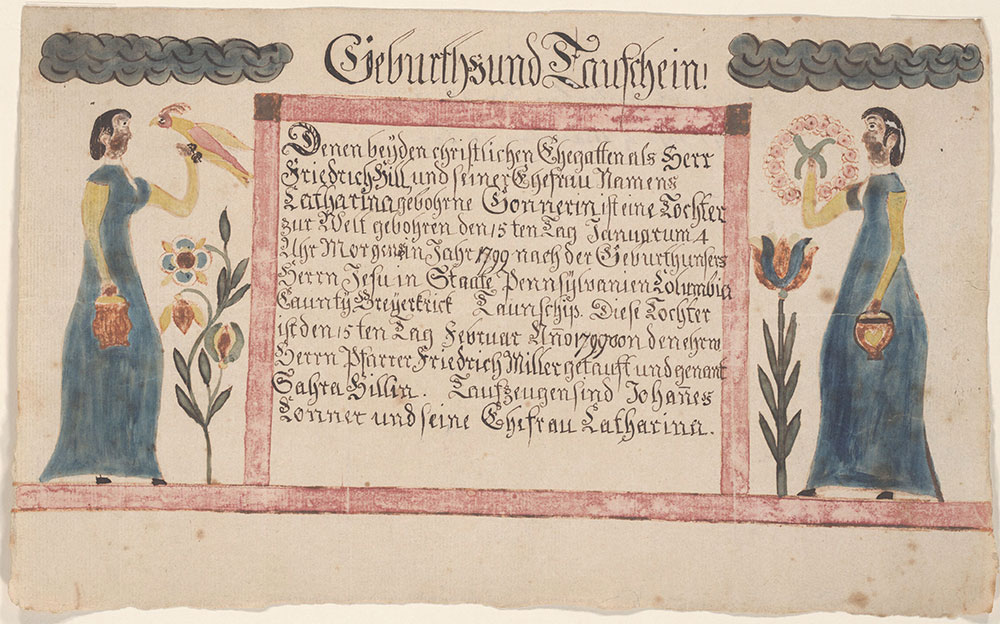 Geburths und Taufschein!
Denen beyden christlichen Ehegatten als Herr
Friedrich Hill und seiner Ehefrau Namens
Catharina gebohrne Connerin ist eine Tochter
zur Welt gebohren den 15ten Tag Januarum 4
Uhr Morgens in Jahr 1799 nach der Geburth unsers
Herrn Jesu in Staate Pennsylvanien Columbia
Caunty Breyertrick Taunschip. Diese Tochter
ist den 15ten Tag Februar Ano 1799 von den ehrw
Herrn Pfarrer Friedrich Miller getauft und genant
Sahra Hillin. Taufzeugen sind Johannes
Conner und seine Ehefrau Catharina.